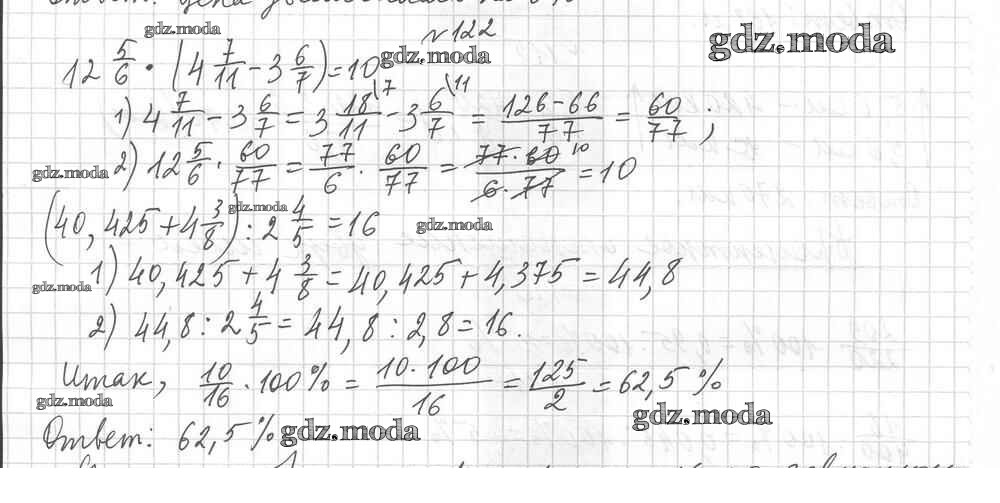 gdz.moda
№122
gdz.moda
12 5/6 · (4 7/11 - 3 6/7) = 10
gdz.moda
1) 4 7/11 - 3 6/7 = 3 18/11 \7 - 3 6/7 \11 = 126-66/77 = 60/77 ;
gdz.moda
2) 12 5/6 · 60/77 = 77/6 · 60/77 = 77·60 10/6·77 = 10
gdz.moda
(40,425 + 4 3/8) : 2 4/5 = 16
gdz.moda
gdz.moda
1) 40,425 + 4 3/8 = 40,425 + 4,375 = 44,8
2) 44,8 : 2 4/5 = 44,8 : 2,8 = 16.
Итак, 10/16 · 100% = 10·100/16 = 125/2 = 62,5 %
gdz.moda
gdz.moda
Ответ: 62,5 %
gdz.moda